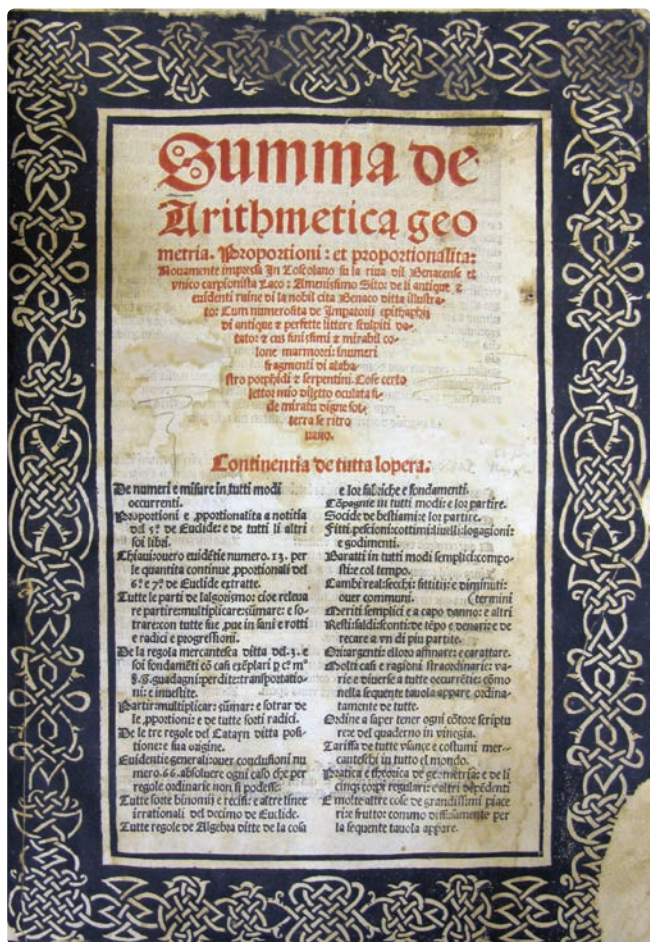 Summa de
Arithmetica geo
metria. Proportioni: et proportionalita:
Nouamente impressa In Toscolano su la riua dil Benacense et
vnico carpionista Laco: Amenissimo Sito: de li antique et
euidenti ruine di la nobil cita Benaco ditta illustra-
to: Cum numerosita de Impatorij epithaphij
di antique et perfette littere sculpiti do-
tato: et cus finissimi et mirabil co-
lone marmorei: inumeri
fragmenti di alaba
stro porphidi et serpentini. Cose certo
lettor mio diletto oculata fi-
de miratu digne sot-
terra se ritro
uano.
Continentia de tutta lopera:
De numeri e misure in tutti modi
occurrenti.
Proportioni e pportionalita a notitia
del 5º de Euclide: e de tutti li altri
soi libri.
Chiaui: ouero euidētie numero. 13. per
le quantita continue pportionali del
6º e 7º de Euclide extratte.
Tutte le parti de lalgorismo: cioe releua
re partire: multiplicare: sūmare: e so-
trare: con tutte sue pue in sani e rotti
e radici e progressioni.
De la regola mercantesca ditta del .3. e
soi fondamēti cō casi exēplari p cº mº
guadagni: perdite: transportatio-
ni: e inuestite.
Partir: multiplicar: sūmar: e sotrar de
le pportioni: e de tutte sorti radici.
De le tre regole del Catayn ditta posi-
tione: e sua origine.
Euidentie generali: ouer conclusioni nu
mero .66. absoluere ogni caso che per
regole ordinarie non si podesse.
Tutte sorte binomij e recisi: e altre linee
irrationali del decimo de Euclide.
Tutte regole de Algebra ditte de la cosa
e lor fabriche e fondamenti.
Cōpagnie in tutti modi: e lor partire.
Socide de bestiami: e lor partire.
Fitti: pescioni: cottimi: liuelli: logagioni:
e godimenti.
Baratti in tutti modi semplici: compo-
sti: e col tempo.
Cambi reali: secchi: fittitij: e diminuti:
ouer communi. (termini
Meriti semplici e a capo danno: e altri
Resti: saldi: sconti: de tēpo e denari: e de
recare a vn di piu partite.
Ori: argenti: e lloro affinare: e carattare.
Molti casi e ragioni straordinarie: va-
rie e diuerse a tutte occurrētie: cōmo
nella sequente tauola appare ordina-
tamente de tutte.
Ordine a saper tener ogni cōto e scriptu
re: e del quaderno in vinegia.
Tariffa de tutte vsance e costumi mer-
canteschi in tutto el mondo.
Pratica e theorica de geometria: e de li
cinqz corpi regulari: e altri dependenti
E molte altre cose de grandissimi piace
ri: e frutto: commo diffusamente per
la sequente tauola appare.